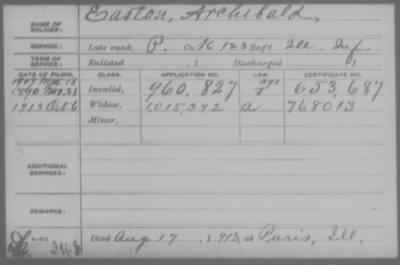 NAME OF SOLDIER: Easton, Archibald,
SERVICE: Late rank, P. Co. K 123 Reg't Ill. Inf.
TERM OF SERVICE: Enlisted , 1 Discharged , 1
DATE OF FILING. CLASS. APPLICATION NO. LAW. CERTIFICATE NO.
1907 Mar 18
1890 Nov. 28 Invalid, 960,827 age 653,687
1913 Oct 6 Widow, 1,015,392 a 768013
Minor,
ADDITIONAL SERVICES:
REMARKS:
Died Aug 17, 1913, at Paris, Ill.